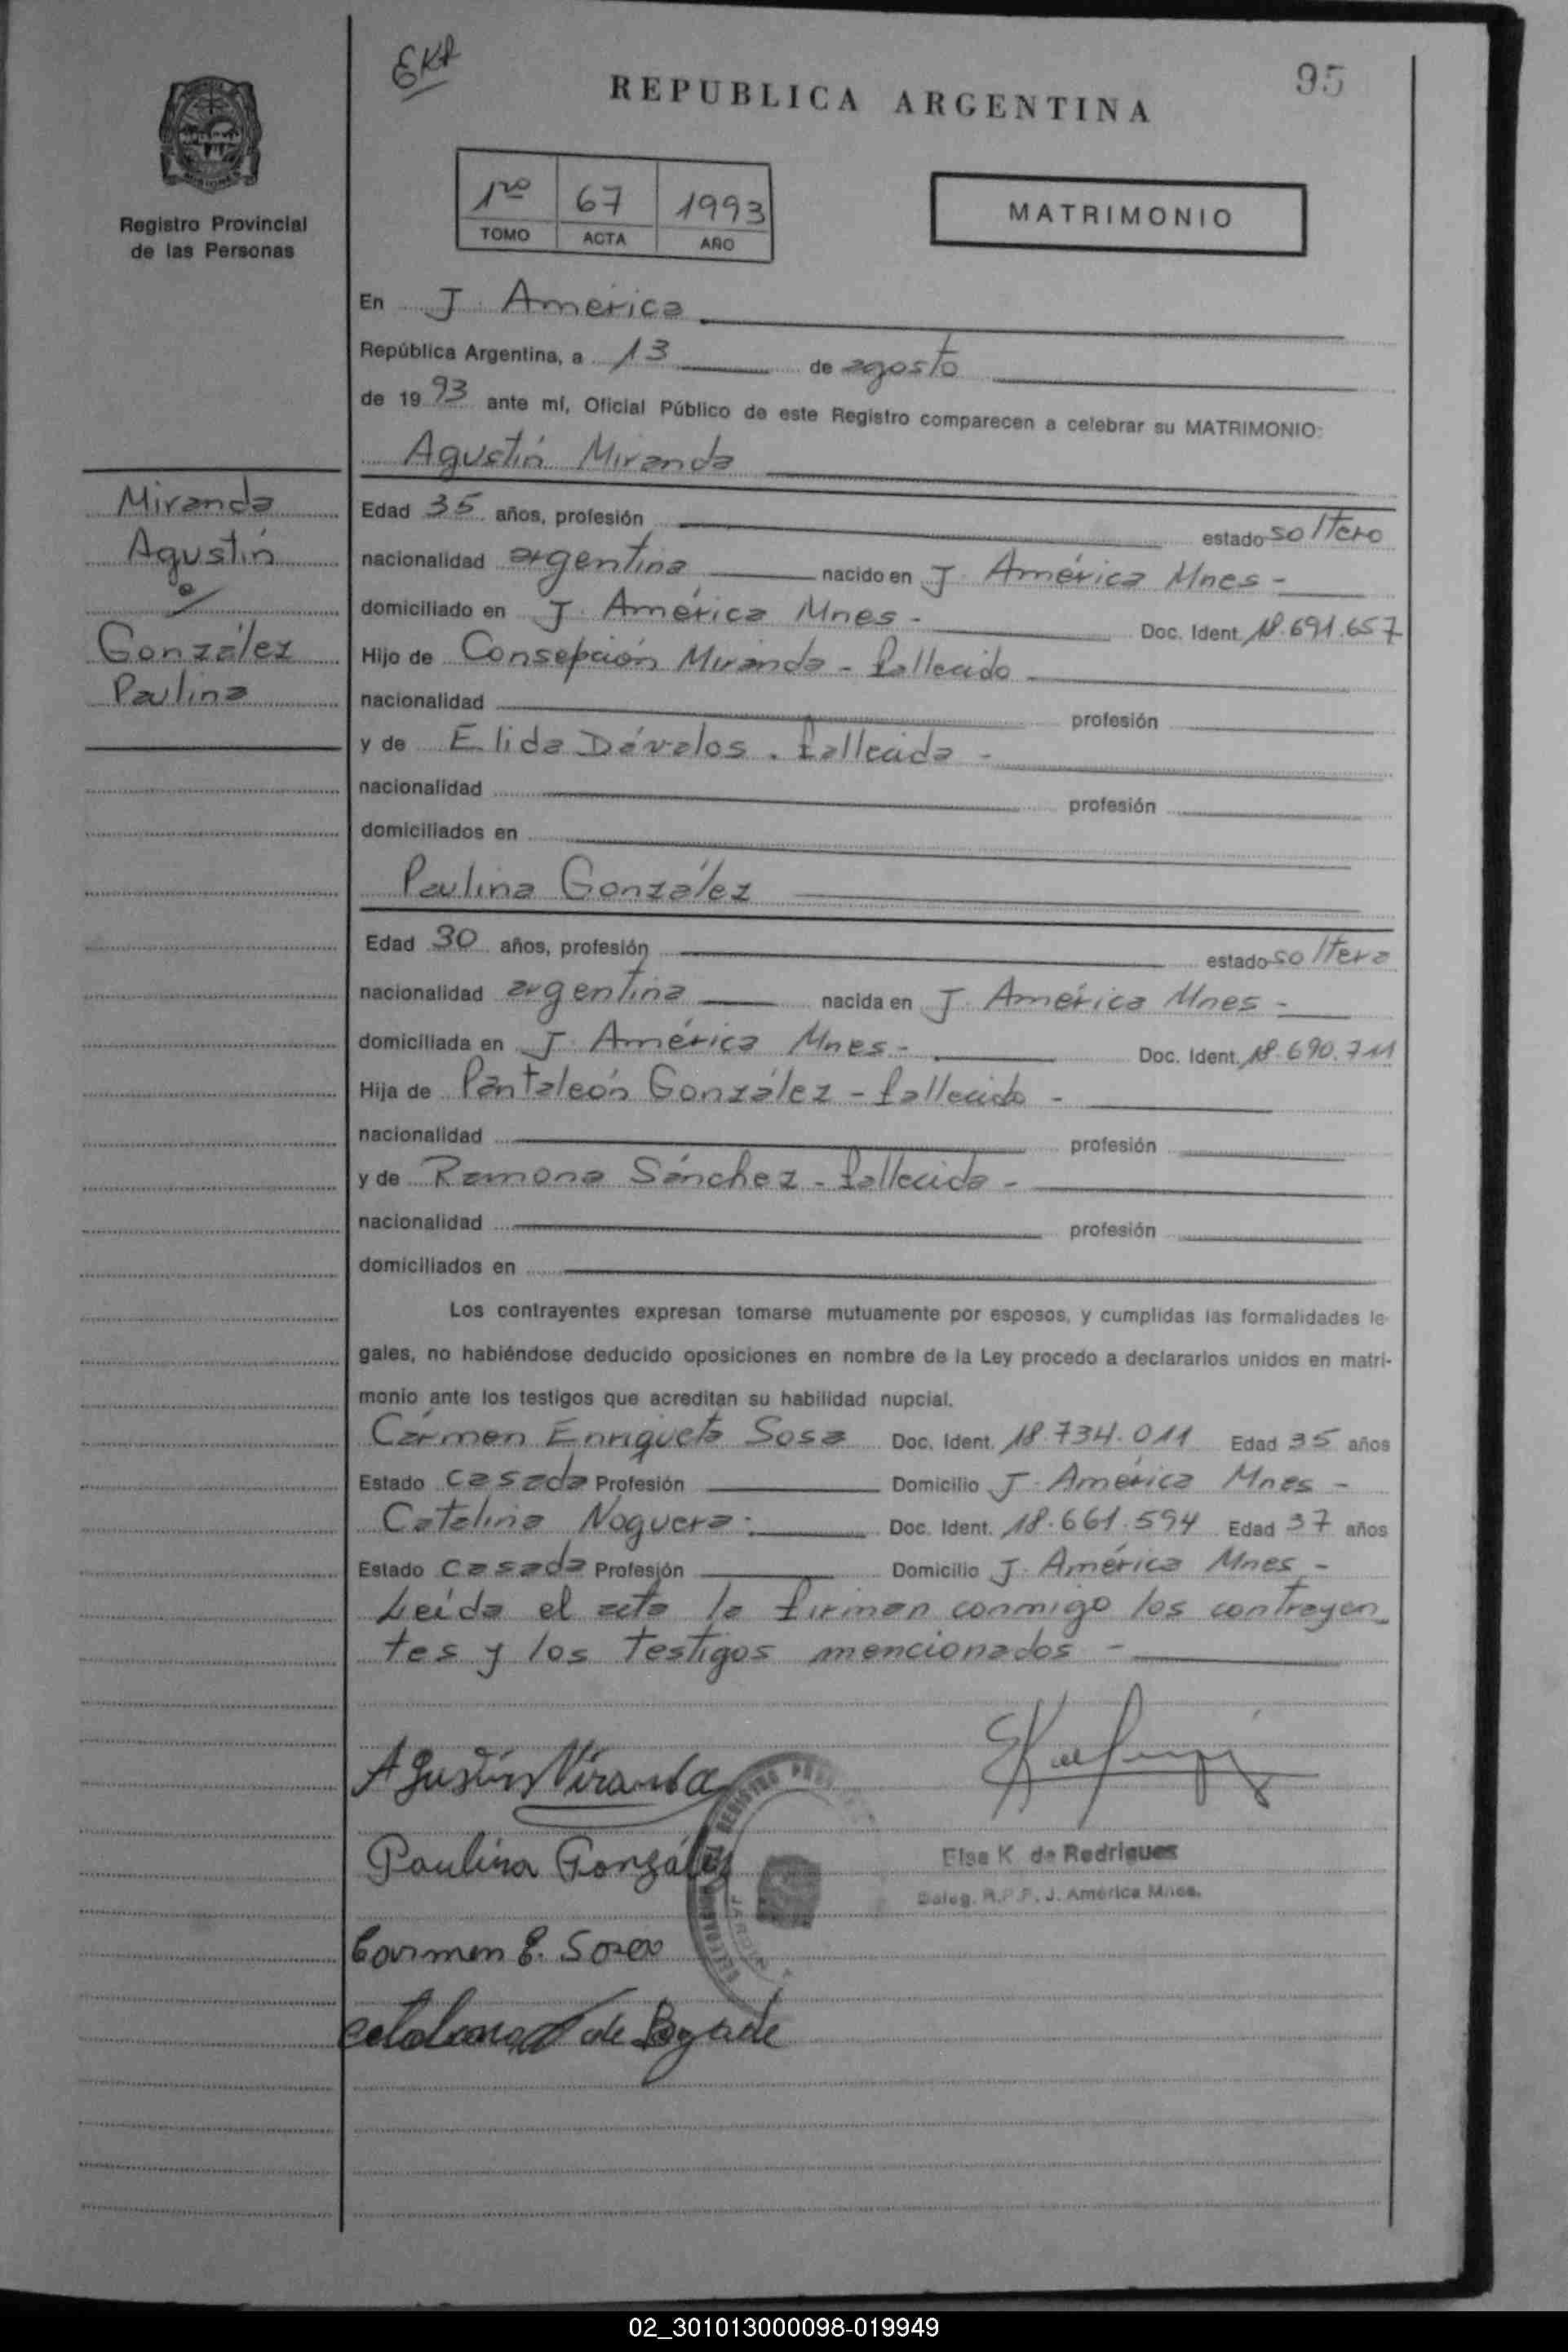 EKR
REPUBLICA ARGENTINA
95
Registro Provincial
de las Personas
1ro 67 1993
TOMO ACTA AÑO
MATRIMONIO
En J. América
República Argentina, a 13 de agosto
de 1993 ante mí, Oficial Público de este Registro comparecen a celebrar su MATRIMONIO:
Agustín Miranda
Miranda
Agustín
c/
González
Paulina
Edad 35 años, profesión estado soltero
nacionalidad argentina nacido en J. América Mnes -
domiciliado en J. América Mnes - Doc. Ident. 18.691.657
Hijo de Consepción Miranda - fallecido
nacionalidad profesión
y de Elida Dávalos - fallecida -
nacionalidad profesión
domiciliados en
Paulina González
Edad 30 años, profesión estado soltera
nacionalidad argentina nacida en J. América Mnes -
domiciliada en J. América Mnes - Doc. Ident. 18.690.711
Hija de Pantaleón González - fallecido -
nacionalidad profesión
y de Ramona Sánchez - fallecida -
nacionalidad profesión
domiciliados en
Los contrayentes expresan tomarse mutuamente por esposos, y cumplidas las formalidades le-
gales, no habiéndose deducido oposiciones en nombre de la Ley procedo a declararlos unidos en matri-
monio ante los testigos que acreditan su habilidad nupcial.
Cármen Enriqueta Sosa Doc. Ident. 18.734.011 Edad 35 años
Estado casada Profesión Domicilio J. América Mnes -
Catalina Noguera. Doc. Ident. 18.661.594 Edad 37 años
Estado casada Profesión Domicilio J. América Mnes -
Leída el acta la firman conmigo los contrayen_
tes y los testigos mencionados -
Agustín Miranda
Paulina González
Elsa K. de Rodriguez
Deleg. R.P.P. J. América Mnes.
Carmen E. Sosa
02_301013000098-019949